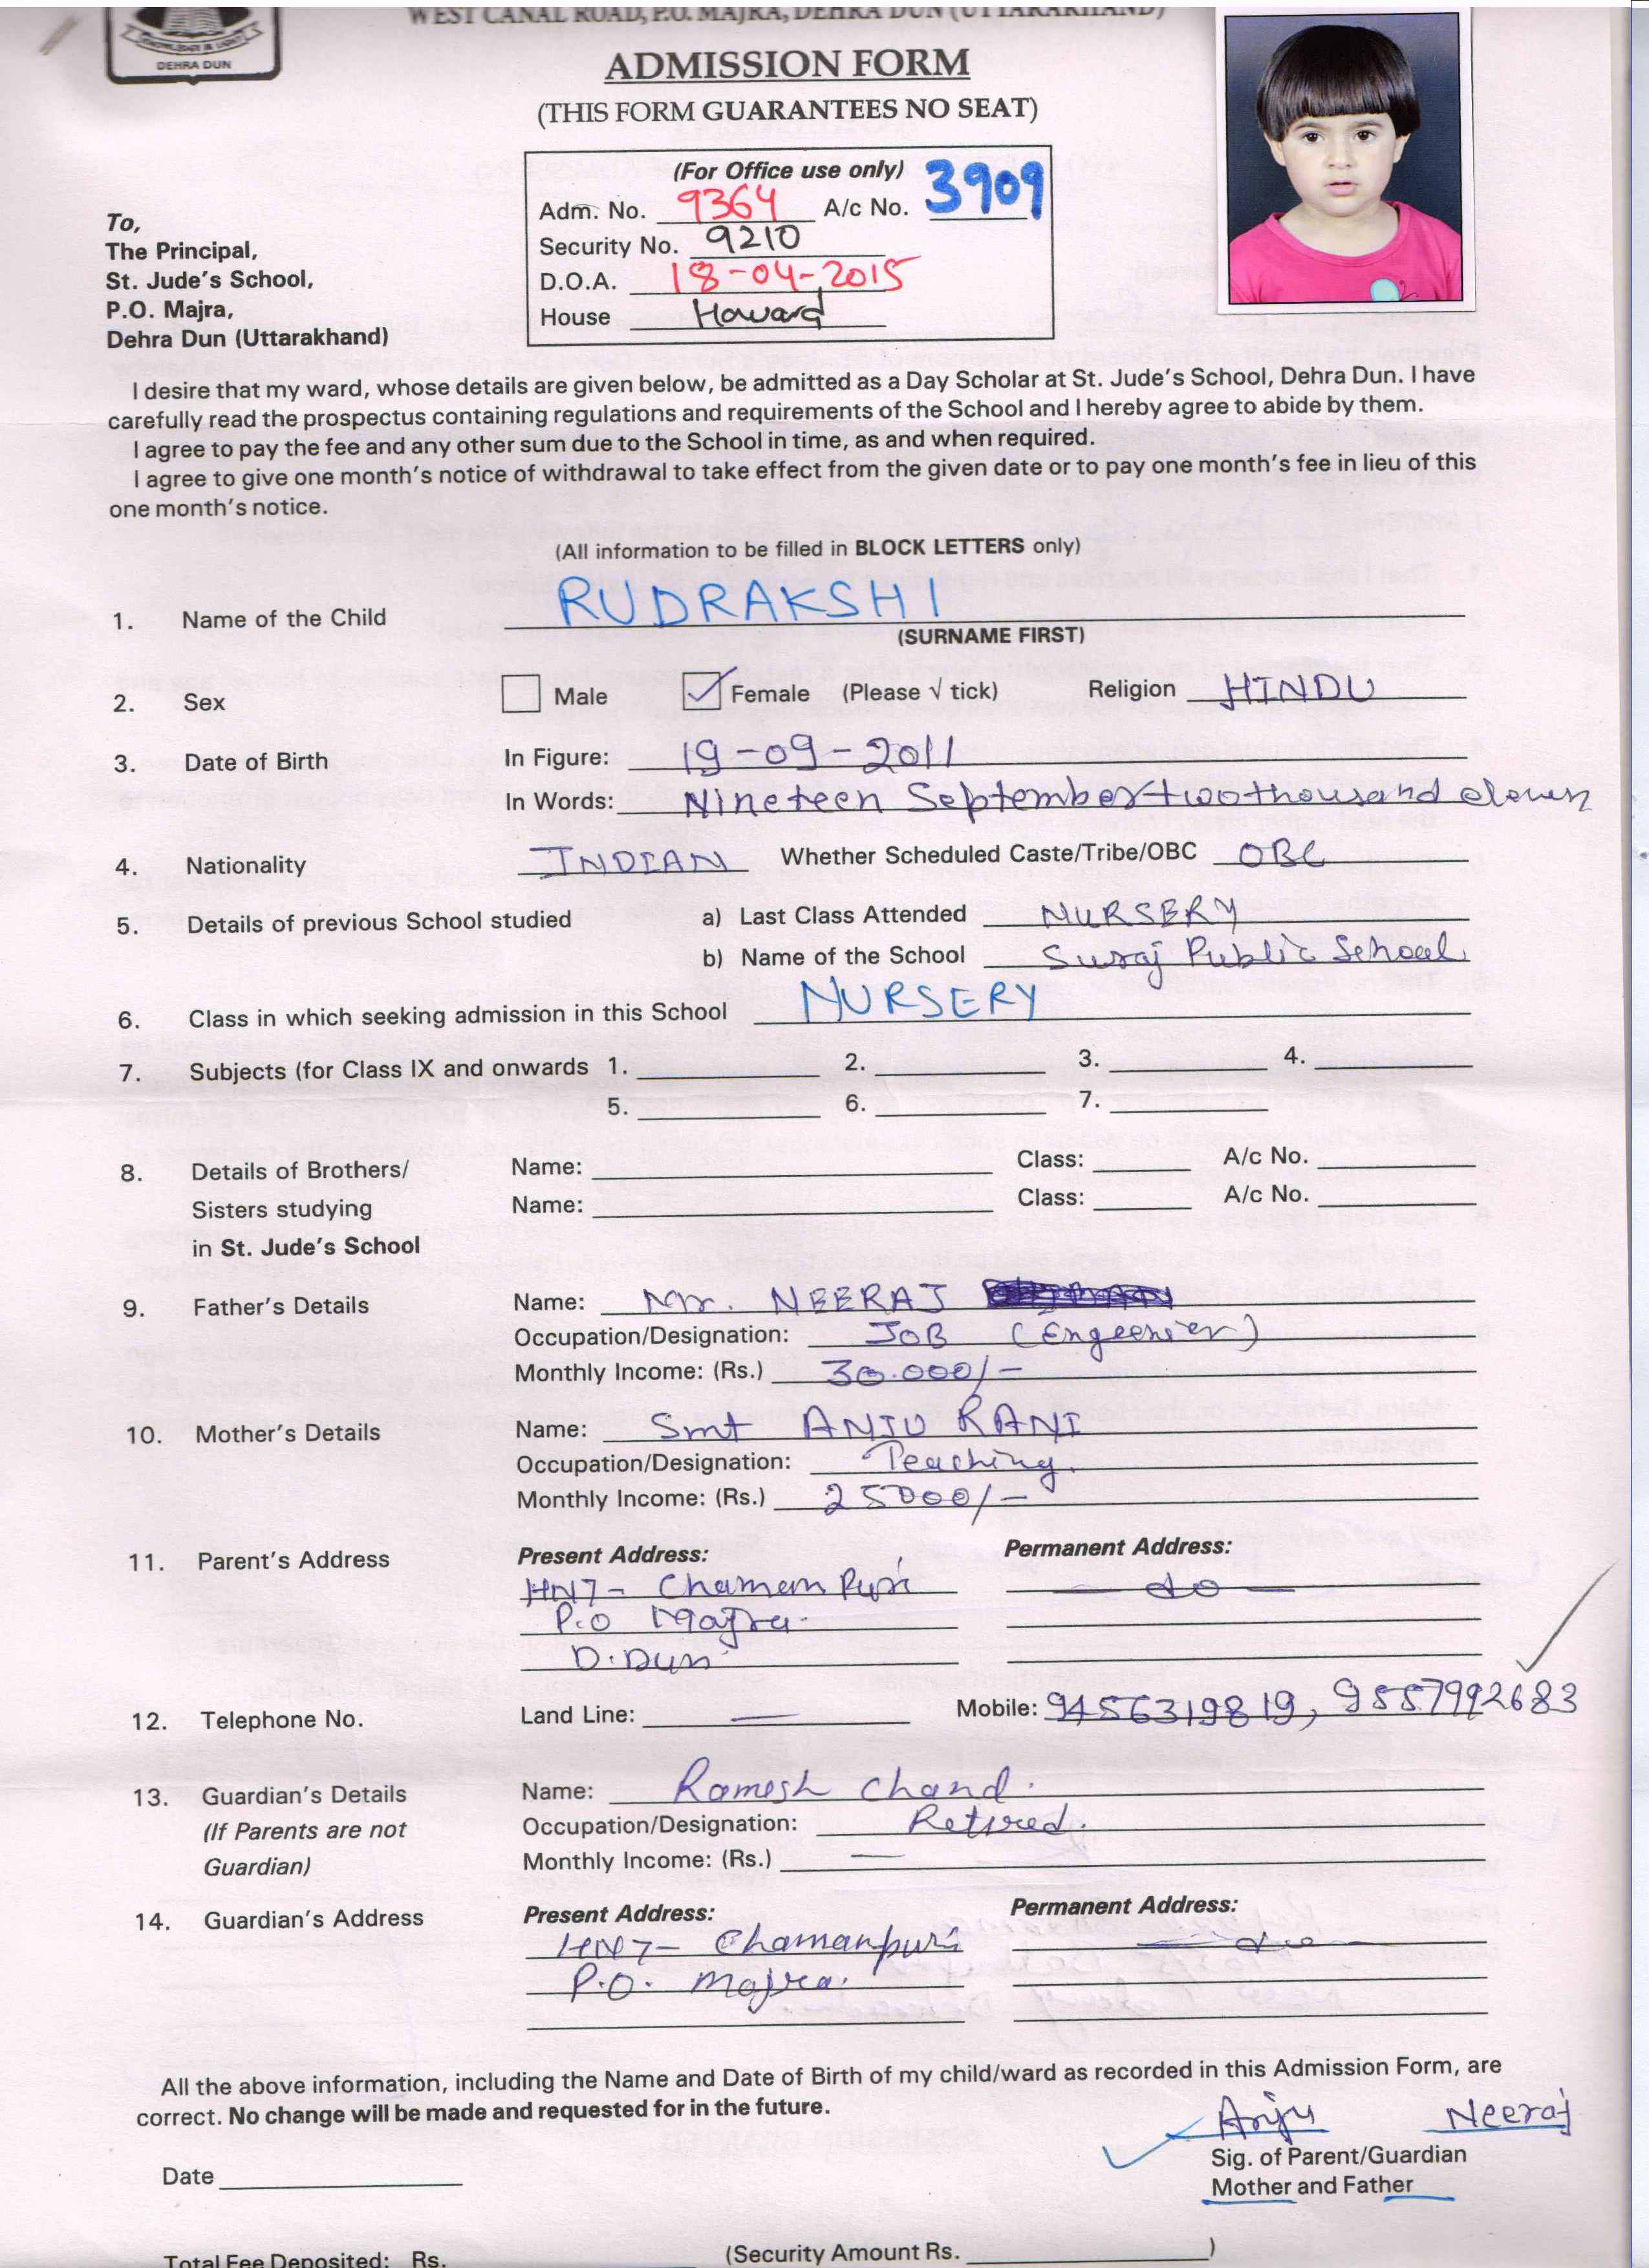 WEST CANAL ROAD, P.O. MAJRA, DEHRA DUN (UTTARAKHAND)
DEHRA DUN
ADMISSION FORM
(THIS FORM GUARANTEES NO SEAT)
(For Office use only)
Adm. No. 9364 A/c No. 3909
Security No. 9210
D.O.A. 18-04-2015
House Howard
To,
The Principal,
St. Jude's School,
P.O. Majra,
Dehra Dun (Uttarakhand)
I desire that my ward, whose details are given below, be admitted as a Day Scholar at St. Jude's School, Dehra Dun. I have
carefully read the prospectus containing regulations and requirements of the School and I hereby agree to abide by them.
I agree to pay the fee and any other sum due to the School in time, as and when required.
I agree to give one month's notice of withdrawal to take effect from the given date or to pay one month's fee in lieu of this
one month's notice.
(All information to be filled in BLOCK LETTERS only)
1. Name of the Child RUDRAKSHI
(SURNAME FIRST)
2. Sex Male Female (Please √ tick) Religion HINDU
3. Date of Birth In Figure: 19-09-2011
In Words: Nineteen September two thousand eleven
4. Nationality INDIAN Whether Scheduled Caste/Tribe/OBC OBC
5. Details of previous School studied a) Last Class Attended NURSERY
b) Name of the School Suraj Public School
6. Class in which seeking admission in this School NURSERY
7. Subjects (for Class IX and onwards 1. 2. 3. 4.
5. 6. 7.
8. Details of Brothers/ Name: Class: A/c No.
Sisters studying Name: Class: A/c No.
in St. Jude's School
9. Father's Details Name: Mr. NEERAJ
Occupation/Designation: JOB (Engeenier)
Monthly Income: (Rs.) 30.000/-
10. Mother's Details Name: Smt ANJU RANI
Occupation/Designation: Teaching.
Monthly Income: (Rs.) 25000/-
11. Parent's Address Present Address: Permanent Address:
HN7- Chamam Puri do
P.O Majra.
D.Dun
12. Telephone No. Land Line: — Mobile: 9456319819, 9557992683
13. Guardian's Details Name: Ramesh Chand.
(If Parents are not Occupation/Designation: Retired.
Guardian) Monthly Income: (Rs.) —
14. Guardian's Address Present Address: Permanent Address:
HN7- Chamanpuri do
P.O. Majra.
All the above information, including the Name and Date of Birth of my child/ward as recorded in this Admission Form, are
correct. No change will be made and requested for in the future.
Anju Neeraj
Sig. of Parent/Guardian
Date Mother and Father
Total Fee Deposited: Rs. (Security Amount Rs. )